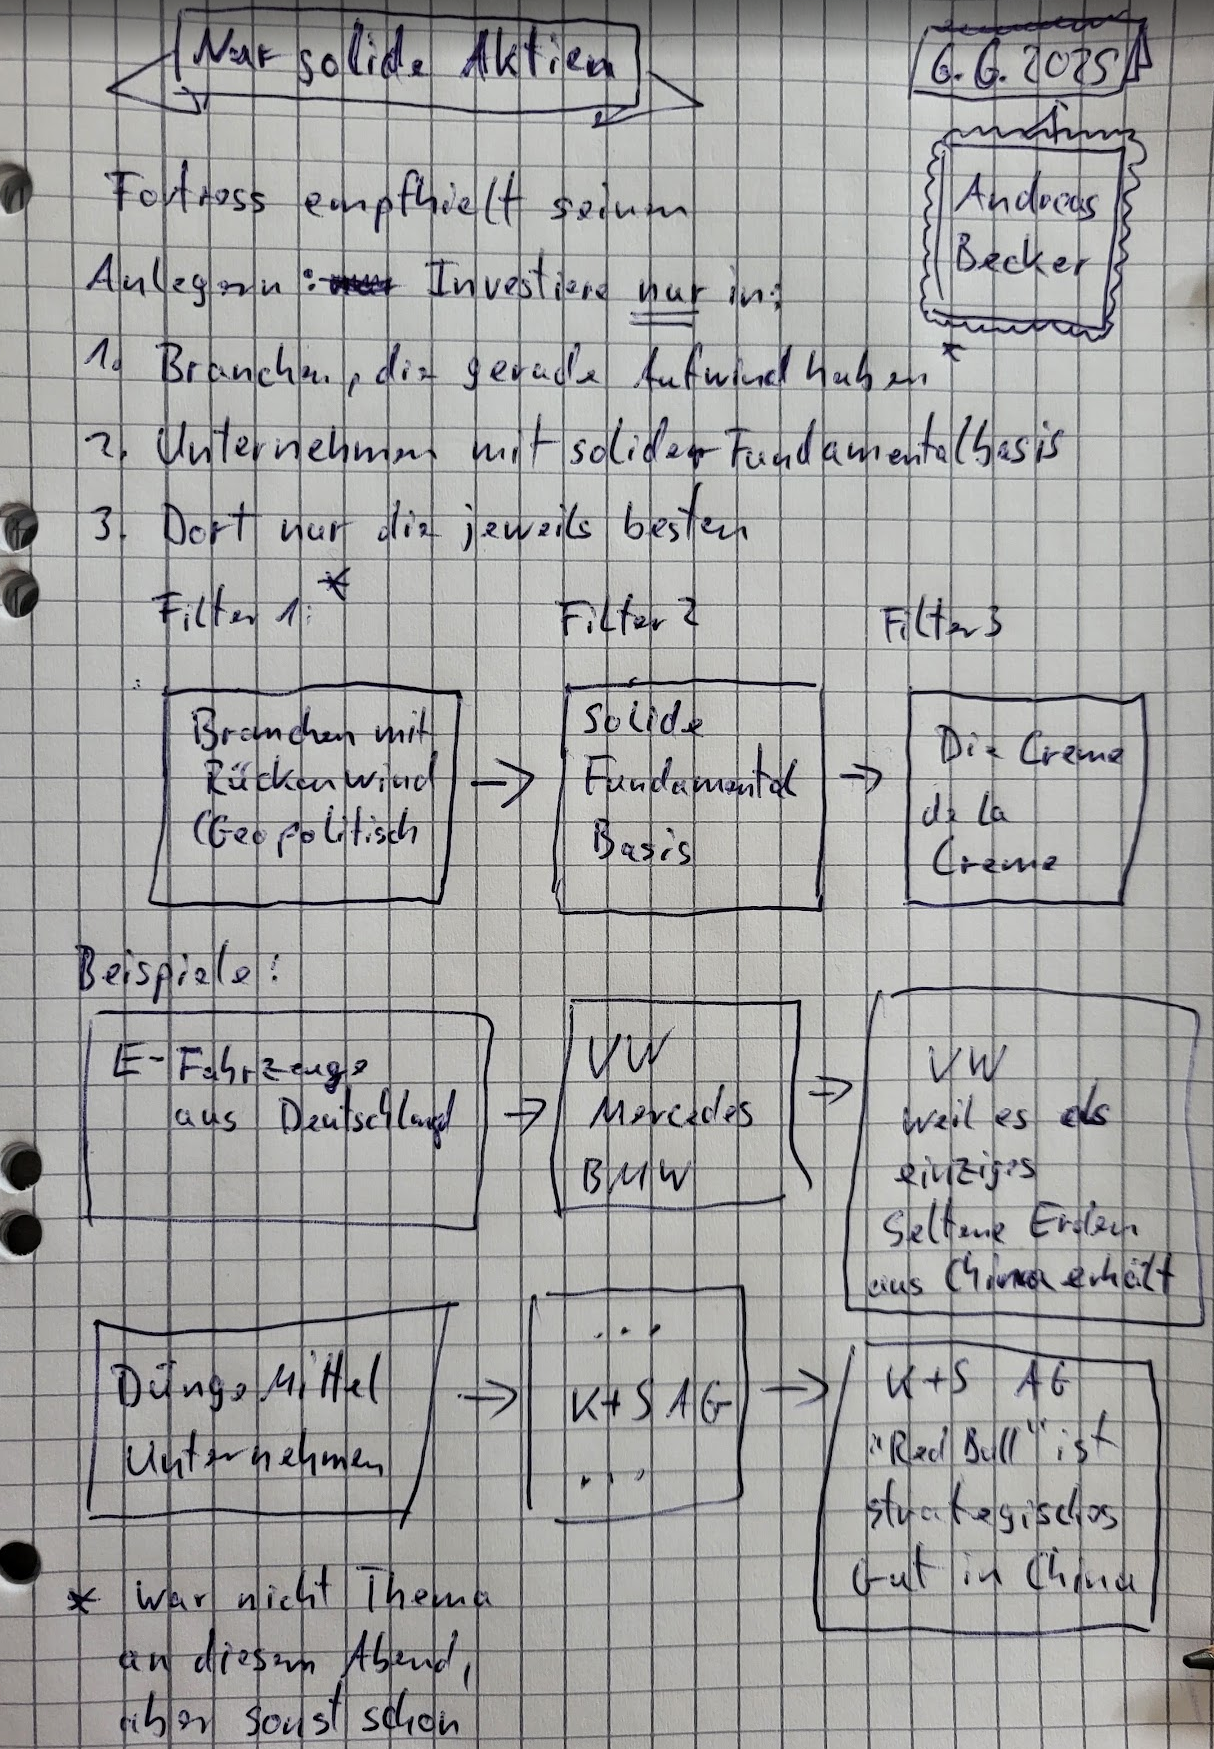 Nur solide Aktien
6.6.2025
Andreas
Becker
Fortress empfhielt seinen
Anlegern: Investiere nur in:
1. Branchen, die gerade Aufwind haben *
2. Unternehmen mit solider Fundamentalbasis
3. Dort nur die jeweils besten
Filter 1: *
Filter 2
Filter 3
Branchen mit
Rückenwind
(Geopolitisch
Solide
Fundamental
Basis
Die Creme
de la
Creme
Beispiele:
E-Fahrzeuge
aus Deutschland
VW
Mercedes
BMW
VW
weil es als
einziges
Seltene Erden
aus China erhält
DüngeMittel
Unternehmen
...
K+S AG
...
K+S AG
"Red Bull" ist
strategisches
Gut in China
* war nicht Thema
an diesem Abend,
aber sonst schon